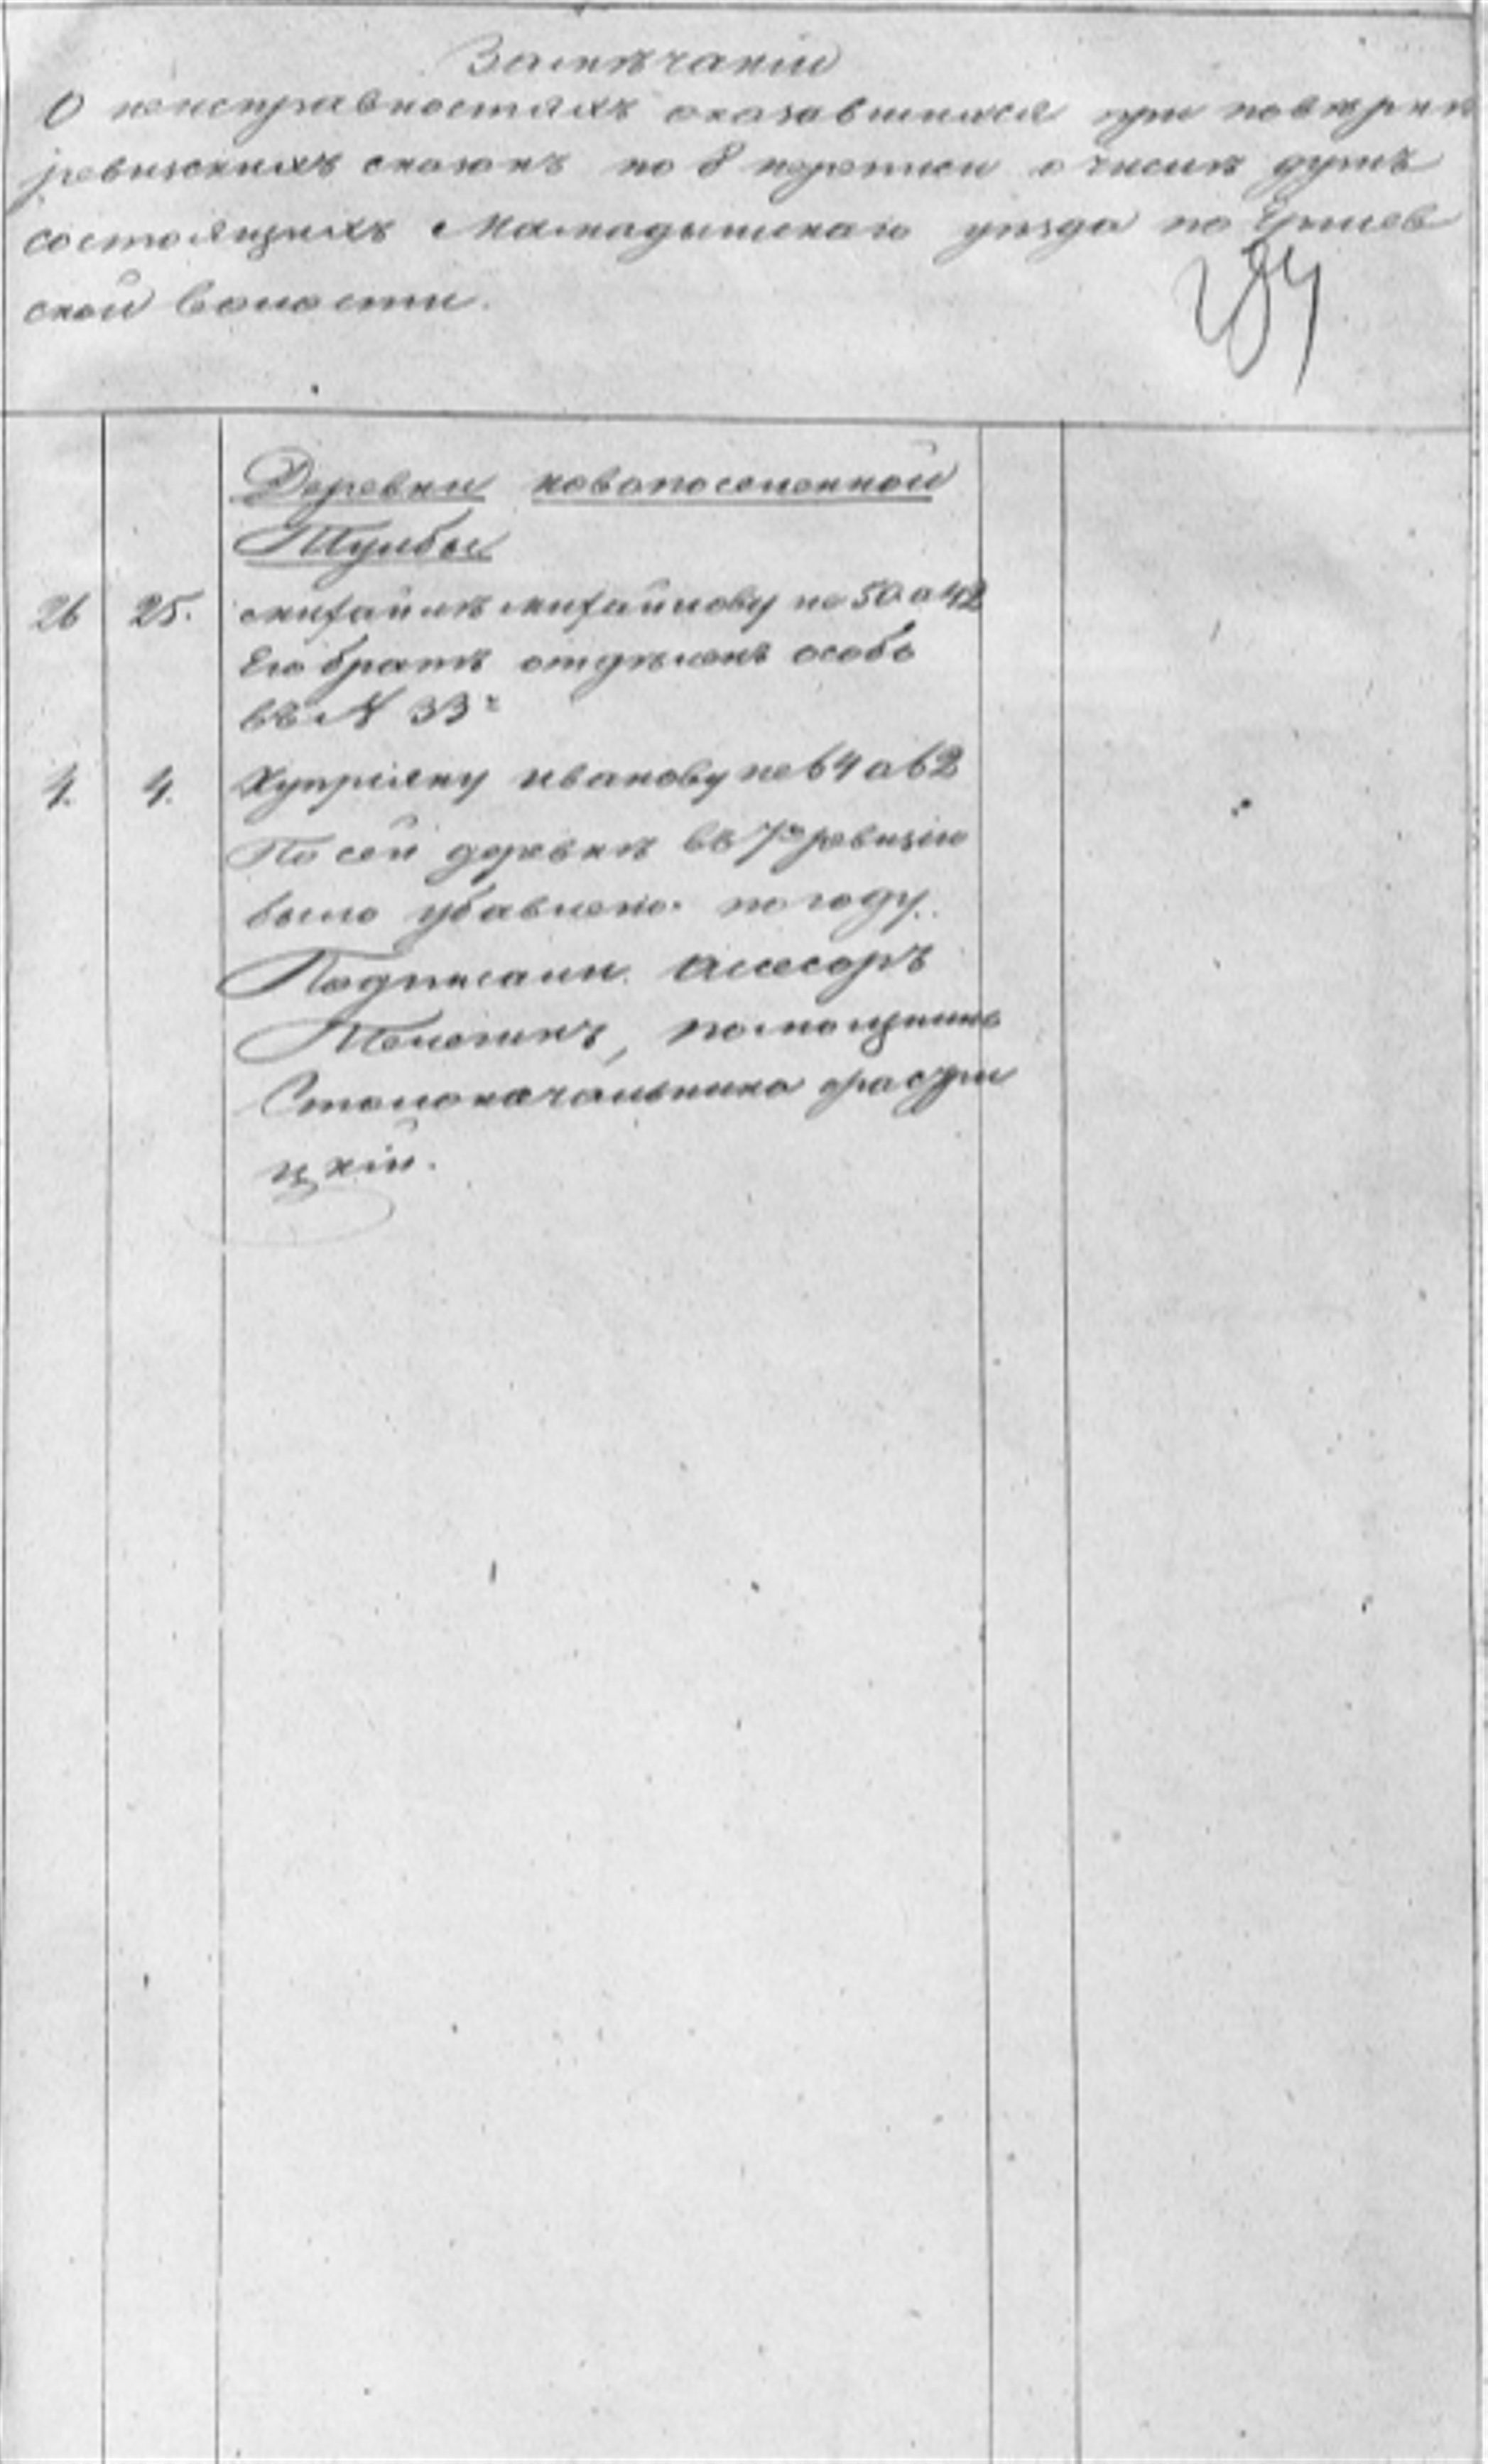 Замѣчаніи
О неисправностяхъ оказавшихся при повѣркѣ
ревизскихъ сказокъ по 8 переписи о числѣ душъ
состоящихъ Мамадышскаго уѣзда по
ской волости.
Деревни новопоселенной
Тулбы
26 25. Михайлѣ Михайлову не 50 а 42
Его братъ отдѣленъ особо
въ № 33й
4. 4. Куприяну Иванову не 64 а 62
По сей деревнѣ въ 7ю ревизію
было убавлено по году.
Подписали Асесоръ
помощникъ
Столоначальника
цкій.